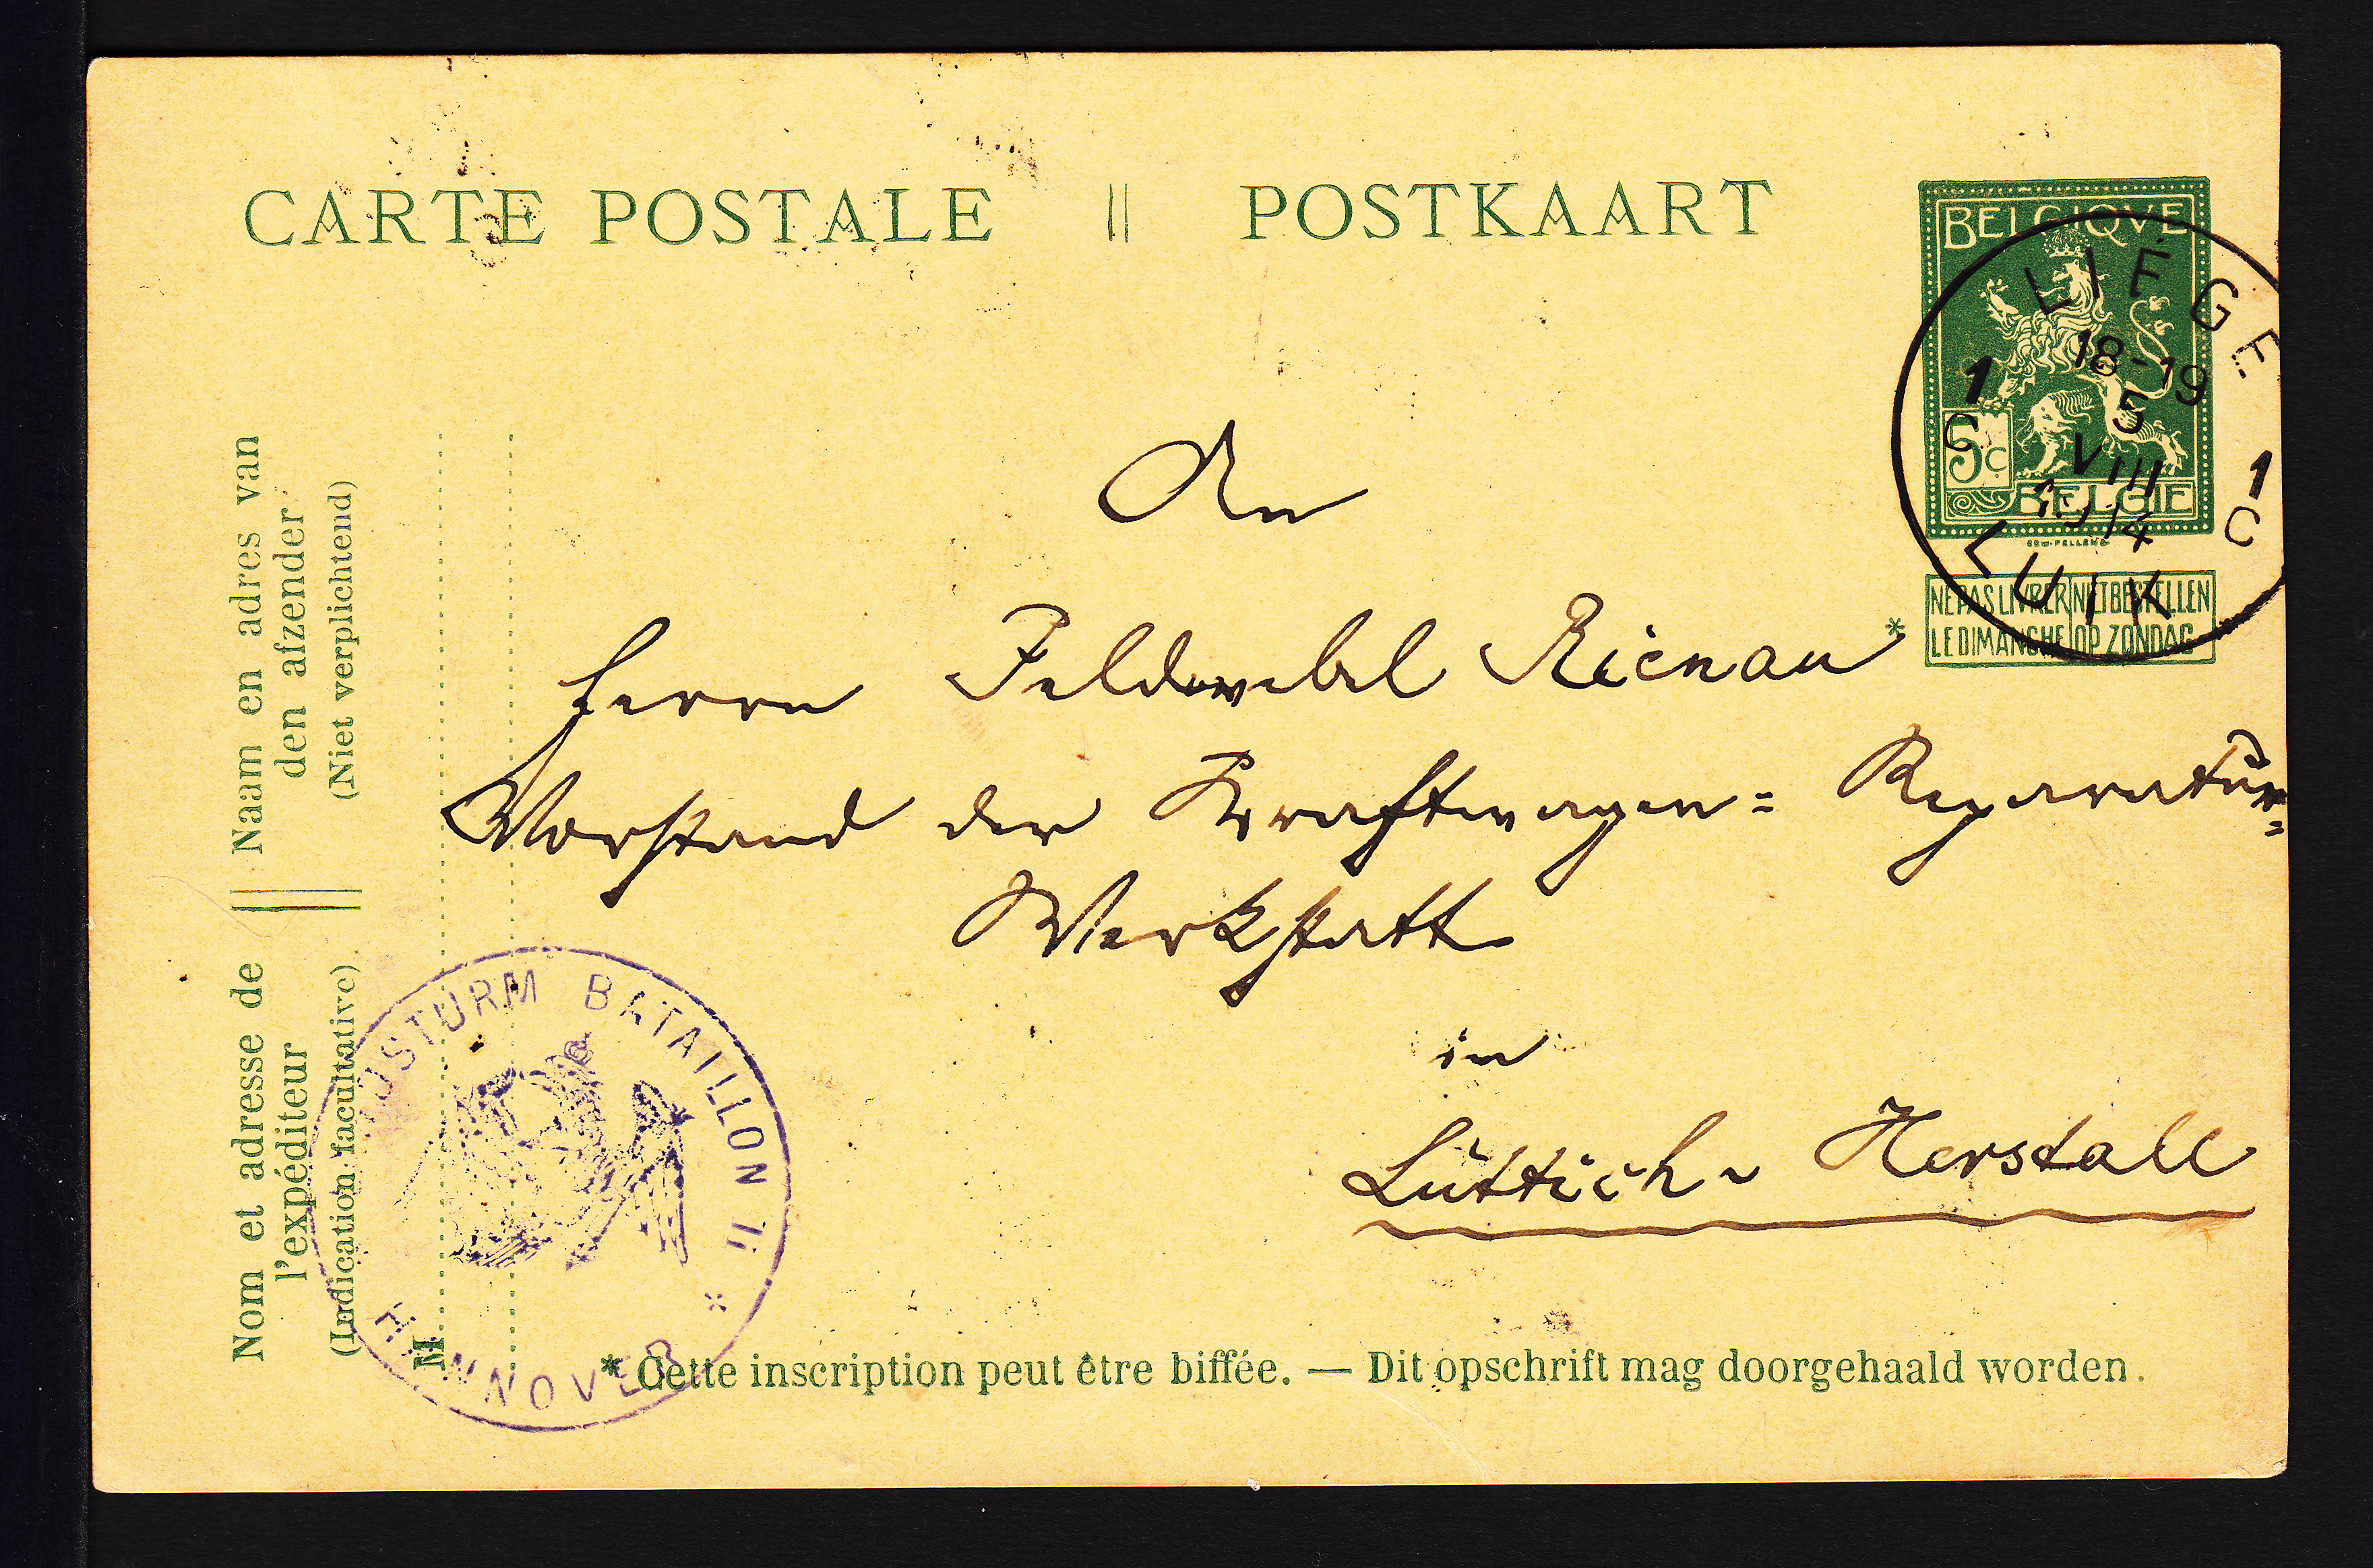 CARTE POSTALE || POSTKAART
BELGIQVE
5c
BELGIE
NE PAS LIVRER LE DIMANCHE
NIET BESTELLEN OP ZONDAG
LIÉGE
1C 1C
18-19
5
VIII
1914
LUIK
An
Herrn Feldwebel Rienau *
Vorstand der Kraftwagen= Reparatur=
Werkstatt
in
Lüttich - Herstall
Naam en adres van
den afzender
(Niet verplichtend)
Nom et adresse de
l'expéditeur
(Indication facultative)
M
DSTURM BATAILLON II
*
HANNOVER
* Cette inscription peut être biffée. — Dit opschrift mag doorgehaald worden.